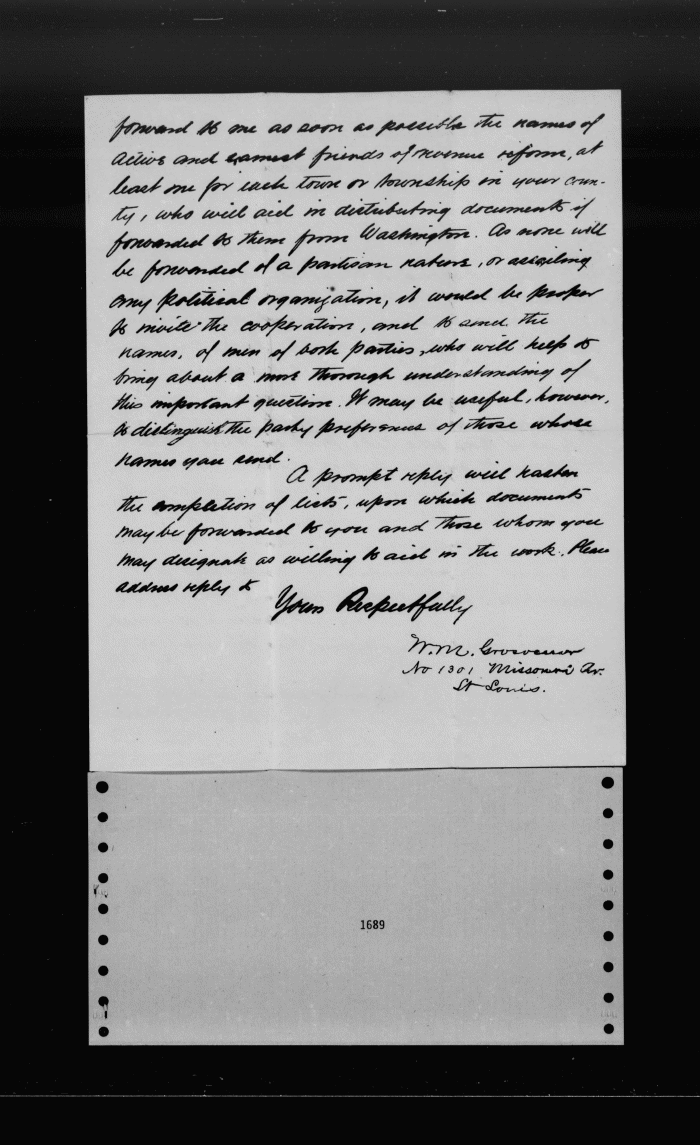 forward to me as soon as possible the names of
active and earnest friends of revenue reform, at
least one for each town or township in your coun-
ty, who will aid in distributing documents if
forwarded to them from Washington. As none will
be forwarded of a partisan nature, or assailing
any political organization, it would be proper
to invite the cooperation, and to send the
names, of men of both parties, who will help to
bring about a more thorough understanding of
this important question. It may be useful, however,
to distinguish the party preference of those whose
names you send.
A prompt reply will hasten
the completion of lists, upon which documents
may be forwarded to you and those whom you
may designate as willing to aid in the work. Please
address reply to
Yours Respectfully
W. M. Grosvenor
No 1301 Missouri Av.
St Louis.
1689